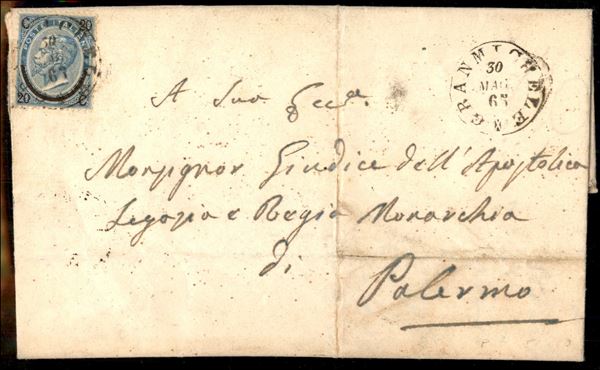 C 20
POSTE
20 C
30
65
GRANMICHELE
30
MAG.
65
A Sua Ecc.a
Monsignor Giudice dell'Apostolica
Legazia e Regia Monarchia
di
Palermo